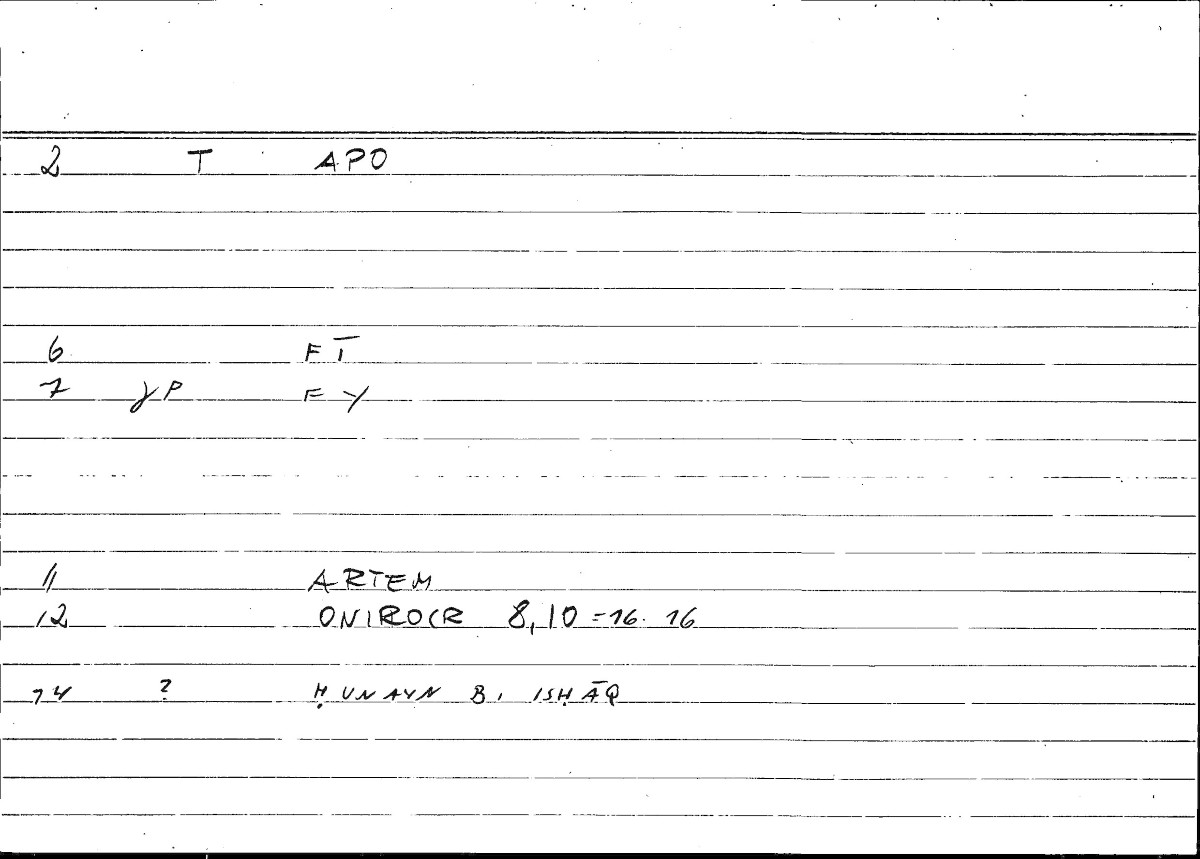 2 T APO
6 F T̄
7 γP F Y
11 ARTEM
12 ONIROCR 8,10 = 16. 16
14 ? ḤUNAYN B. ISḤĀQ